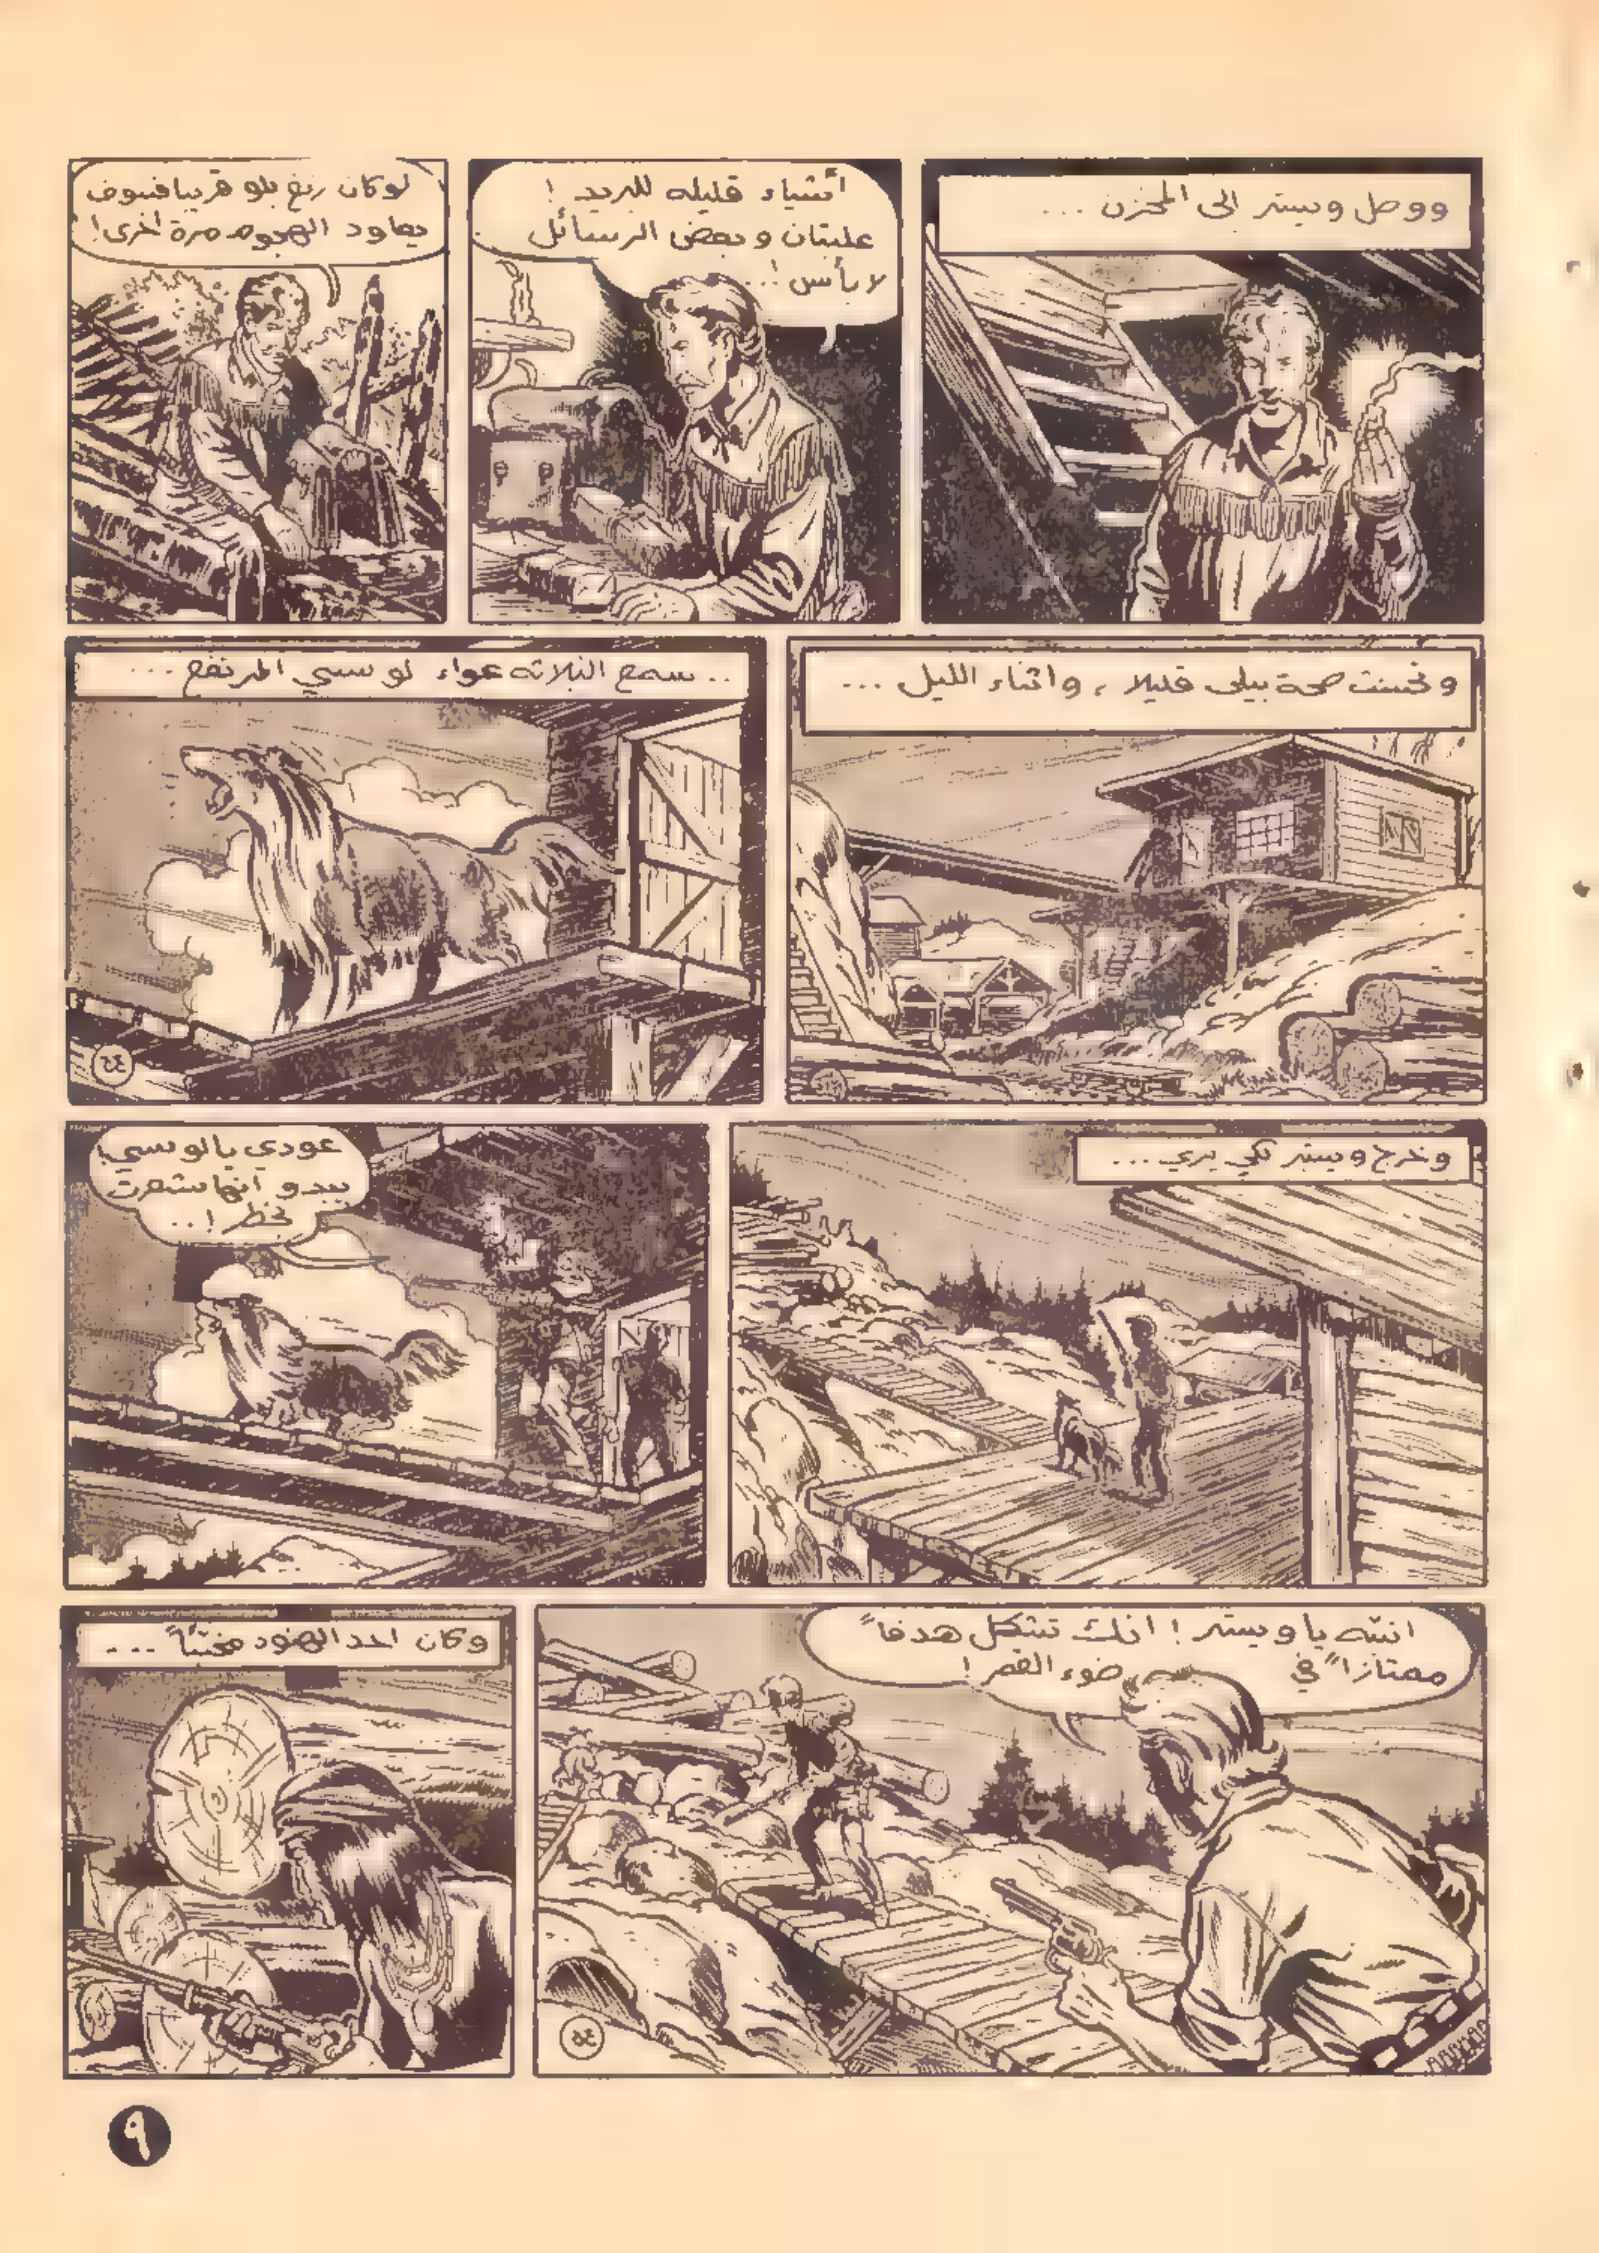 ووصل ويستر الى المخزن ...
أشياء قليله للبريد !
علبتان وبعض الرسائل
لا بأس !...
لو كان رنغ بلو قريبا فسوف
يعاود الهجوم مرة اخرى !
وتحسنت صحة بيلي قليلا ، واثناء الليل ...
.. سمع الثلاثه عواء لوسي المرتفع ...
٤٣
وخرج ويستر لكي يرى ...
عودي يا لوسي !
يبدو انها شعرت
بخطر !..
انتبه يا ويستر ! انك تشكل هدفاً
ممتازاً في ضوء القمر !
٤٥
وكان احد الهنود مختبئاً ...
٩